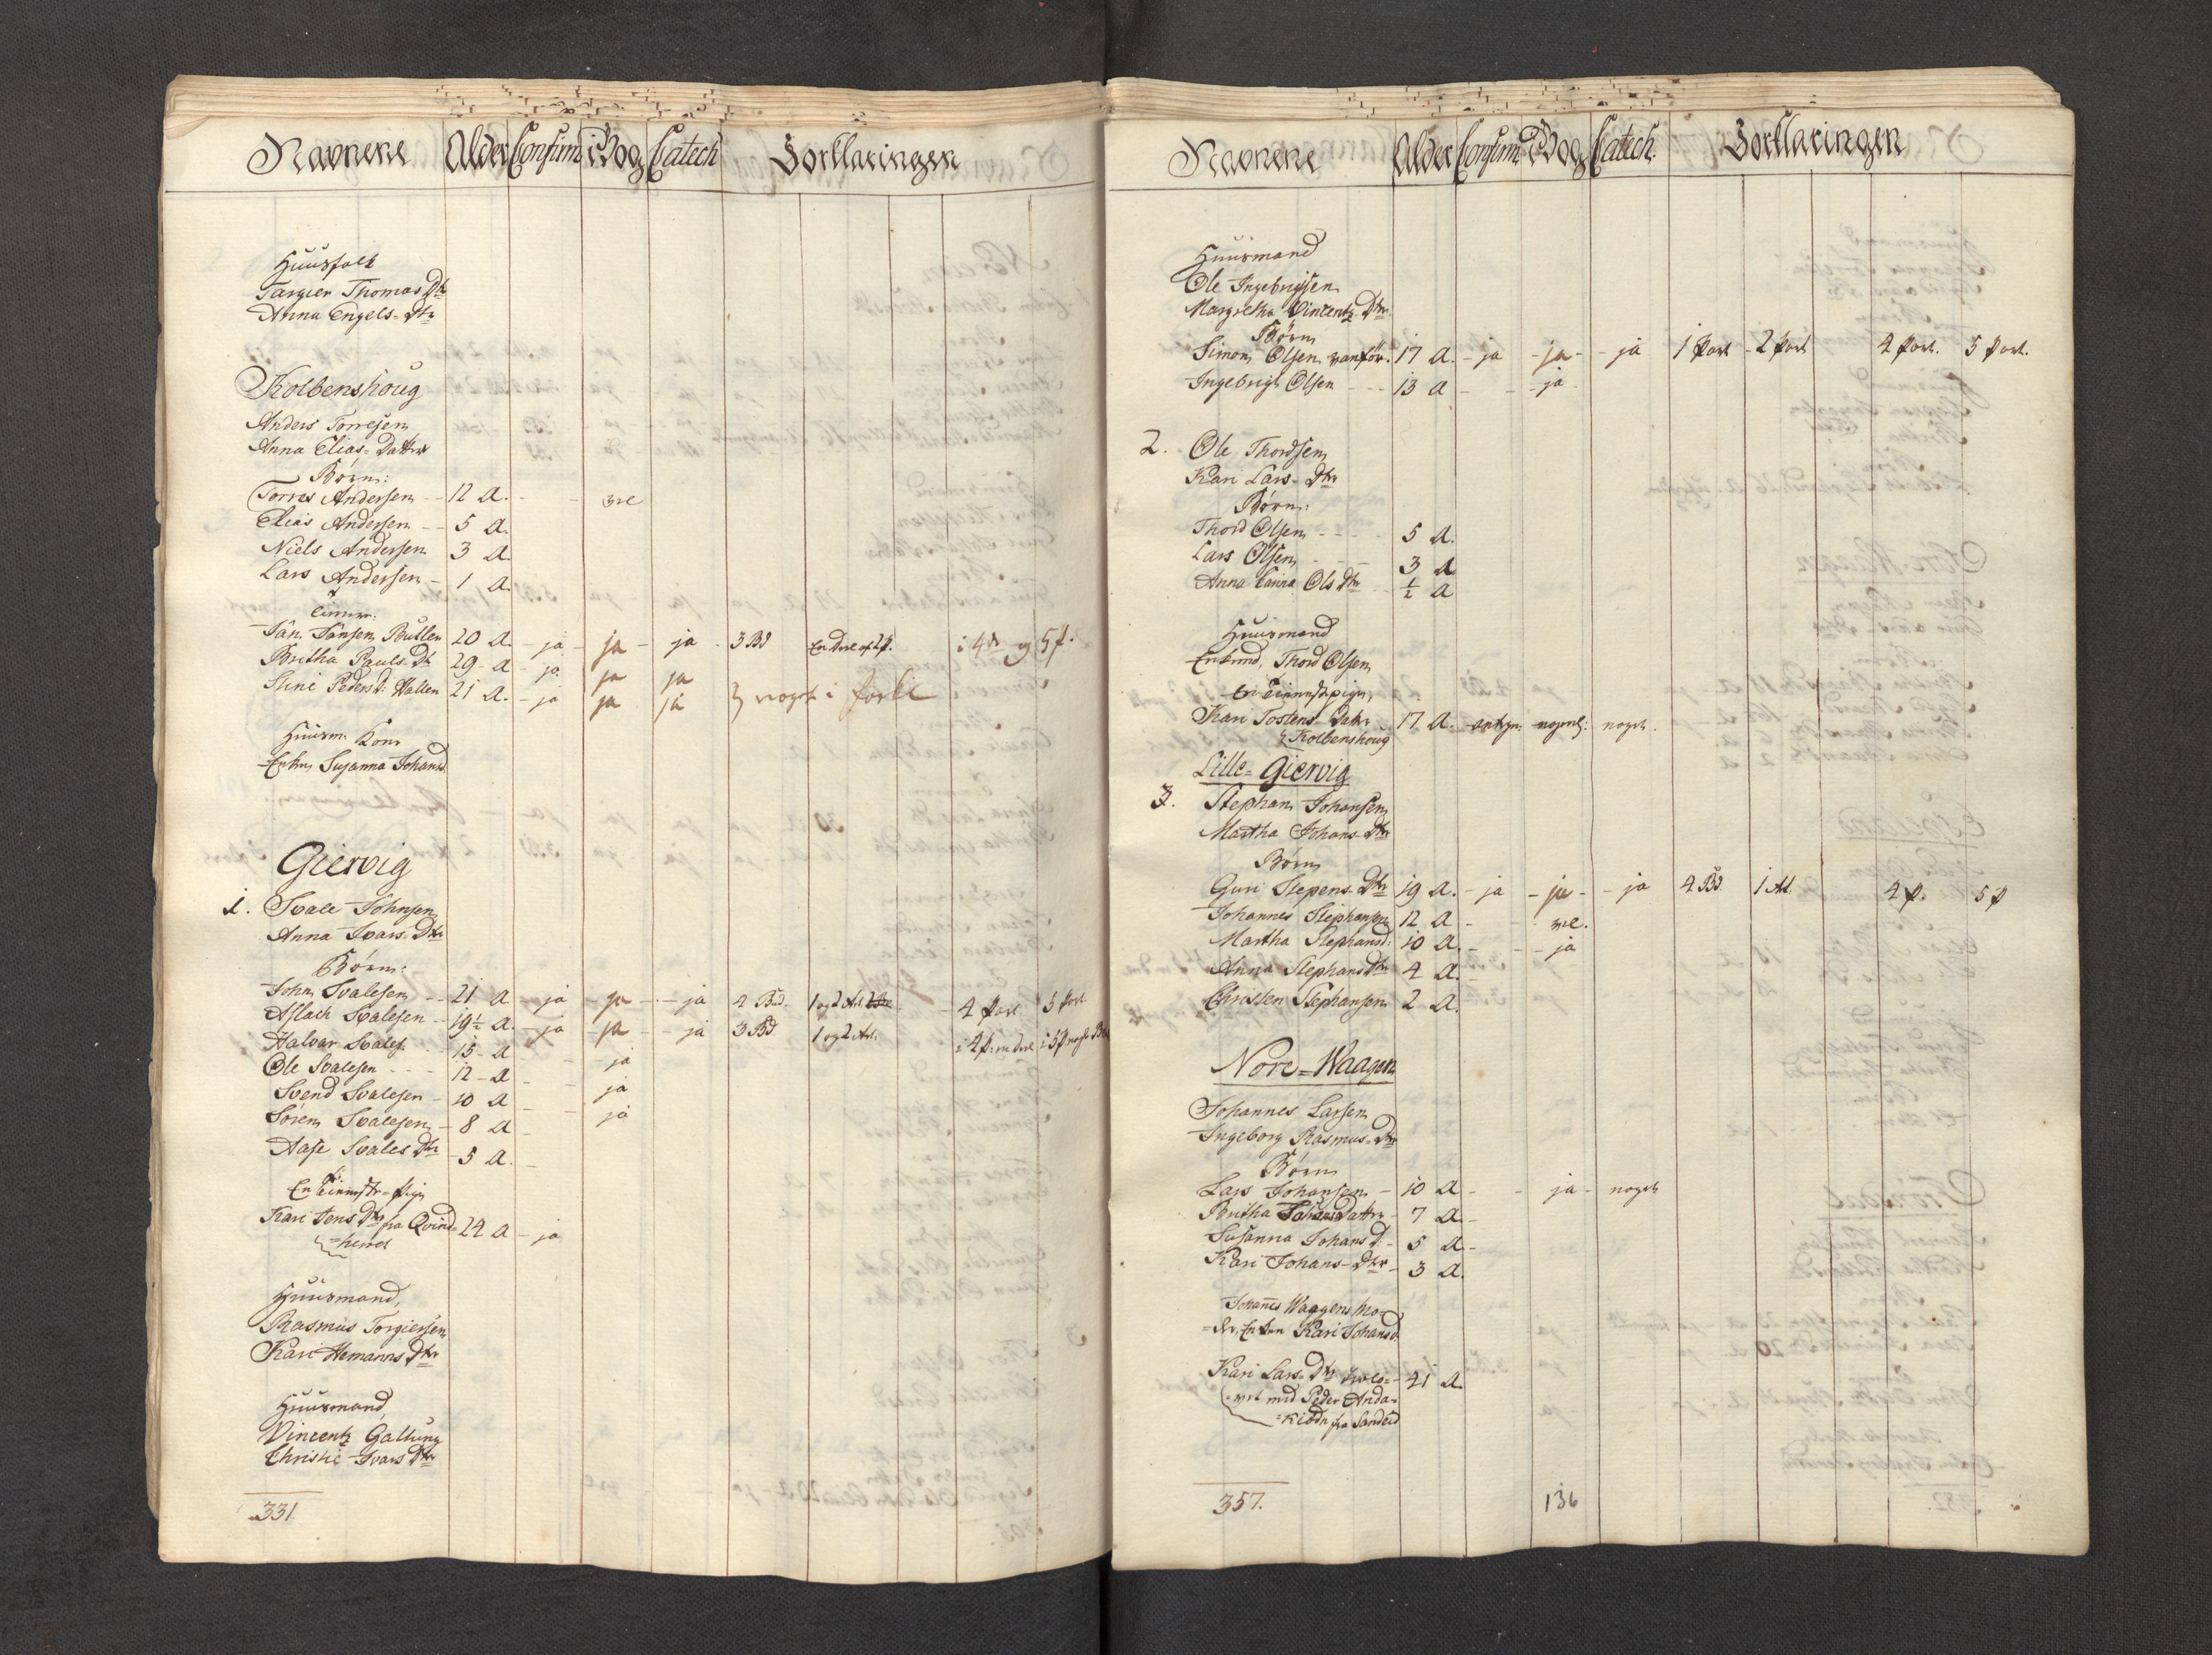 Navnene Alder Confirm i Bog Catech Forklaringen
Huusfolk
Torgier Thomas Dtr
Anna Engels-Dtr
Kolbenshoug
Anders Torresen
Anna Elias-Datter
Børn:
Torres Andersen 12 A. vel
Elias Andersen 5 A.
Niels Andersen 3 A.
Lars Andersen 1 A.
20 A. ja ja ja 3 Bd i 4de og 5 p.
Britha Pauls Dt 29 A ja ja ja
Peders D. 21 A. ja ja ja noget i forkl
Huusm: Kone
Enken Susanna Johansd
Giervig
1. Svale Johnsen
Anna Ivars-Dtr
Børn:
John Svalesen 21 A ja ja ja 4 Bud. 1 og 2 Art 4 Part 5 Part.
Aslach Svalesen 19½ A. ja ja ja 3 Bd 1 og 2 Art.
Halvar Svales. 15 A ja
Ole Svalesen 12 A ja
Svend Svalesen 10 A ja
Søren Svalesen 8 A
Aase Svales Dtr 5 A.
Kari Jens Dtr fra Qvind= 24 A ja
=herred
Huusmand,
Rasmus Torgiersen
Kari Hemanns Dtr
Huusmand
Vincentz Galtung
Christie Ivars Dtr
331.
Navnene Alder Confirm i Bog Catech. Forklaringen
Huusmand
Ole Ingebrigtsen
Margretha Vincentz Dtr
Børn
Simon Olsen vanfør. 17 A. ja ja ja 1 Part 2 Part 4 Part. 5 Part.
Ingebrigt Olsen 13 A ja
2. Ole Thordsen
Kari Lars-Dtr
Børn:
Thord Olsen 5 A.
Lars Olsen 3 A
Anna Olsdtr ½ A
Huusmand
Enkemd, Thord Olsen
En tienstepige,
Kari Tostens-Datr 17 A. noget.
Kolbenshoug
Lille-Giervig
3. Stephan Johansen
Martha Johans-Dtr
Børn
Guri Stepens Dtr 19 A. ja ja ja 4 Bd. 1 Art. 4 p. 5 p
Johannes Stephansen 12 A vel.
Martha Stephansd: 10 A. ja
Anna Stephansdtr 4 A.
Christen Stephansen 2 A.
Nore-Waagen
Johannes Larsen
Ingeborg Rasmus-Dtr
Børn
Lars Johansen 10 A ja noget
Britha Johans Datter 7 A.
Susanna Johans D. 5 A.
Kari Johans-Dtr 3 A.
Johannes Waagens Mo=
=der, Enken Kari Johansd.
Kari Lars-Dtr trolo= 41 A.
=vet med Peder Anda=
fra Sandeid
357. 136